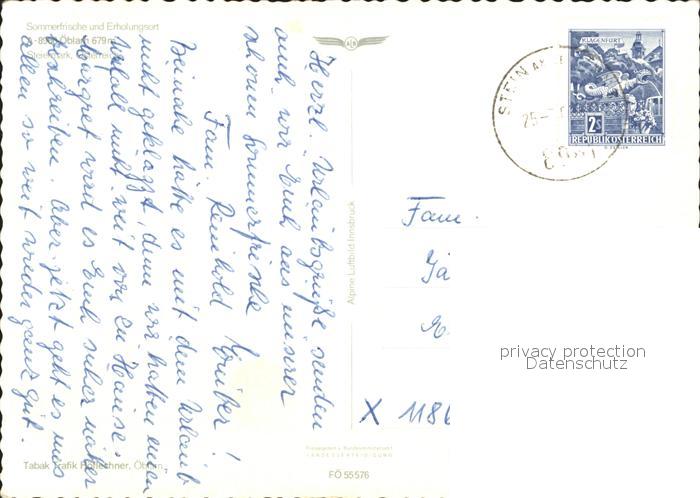 Sommerfrische und Erholungsort
Öblarn 679 m
Steiermark, Österreich
Herzl. Urlaubsgrüße senden
auch wir Euch aus unserer
schönen Sommerfrische
Fam. Reinhold Gruber!
Beinahe hätte es mit dem Urlaub
nicht geklappt, denn wir hatten einen
Unfall nicht weit von zu Hause.
Margret wird es Euch sicher näher
beschreiben. Aber jetzt geht es uns
allen so weit wieder ganz gut.
Alpine Luftbild Innsbruck
Tabak Trafik Öblarn
FÖ 55576
KLAGENFURT
2 S
REPUBLIK ÖSTERREICH
STEIN
25
Fam.
X 1186
privacy protection
Datenschutz